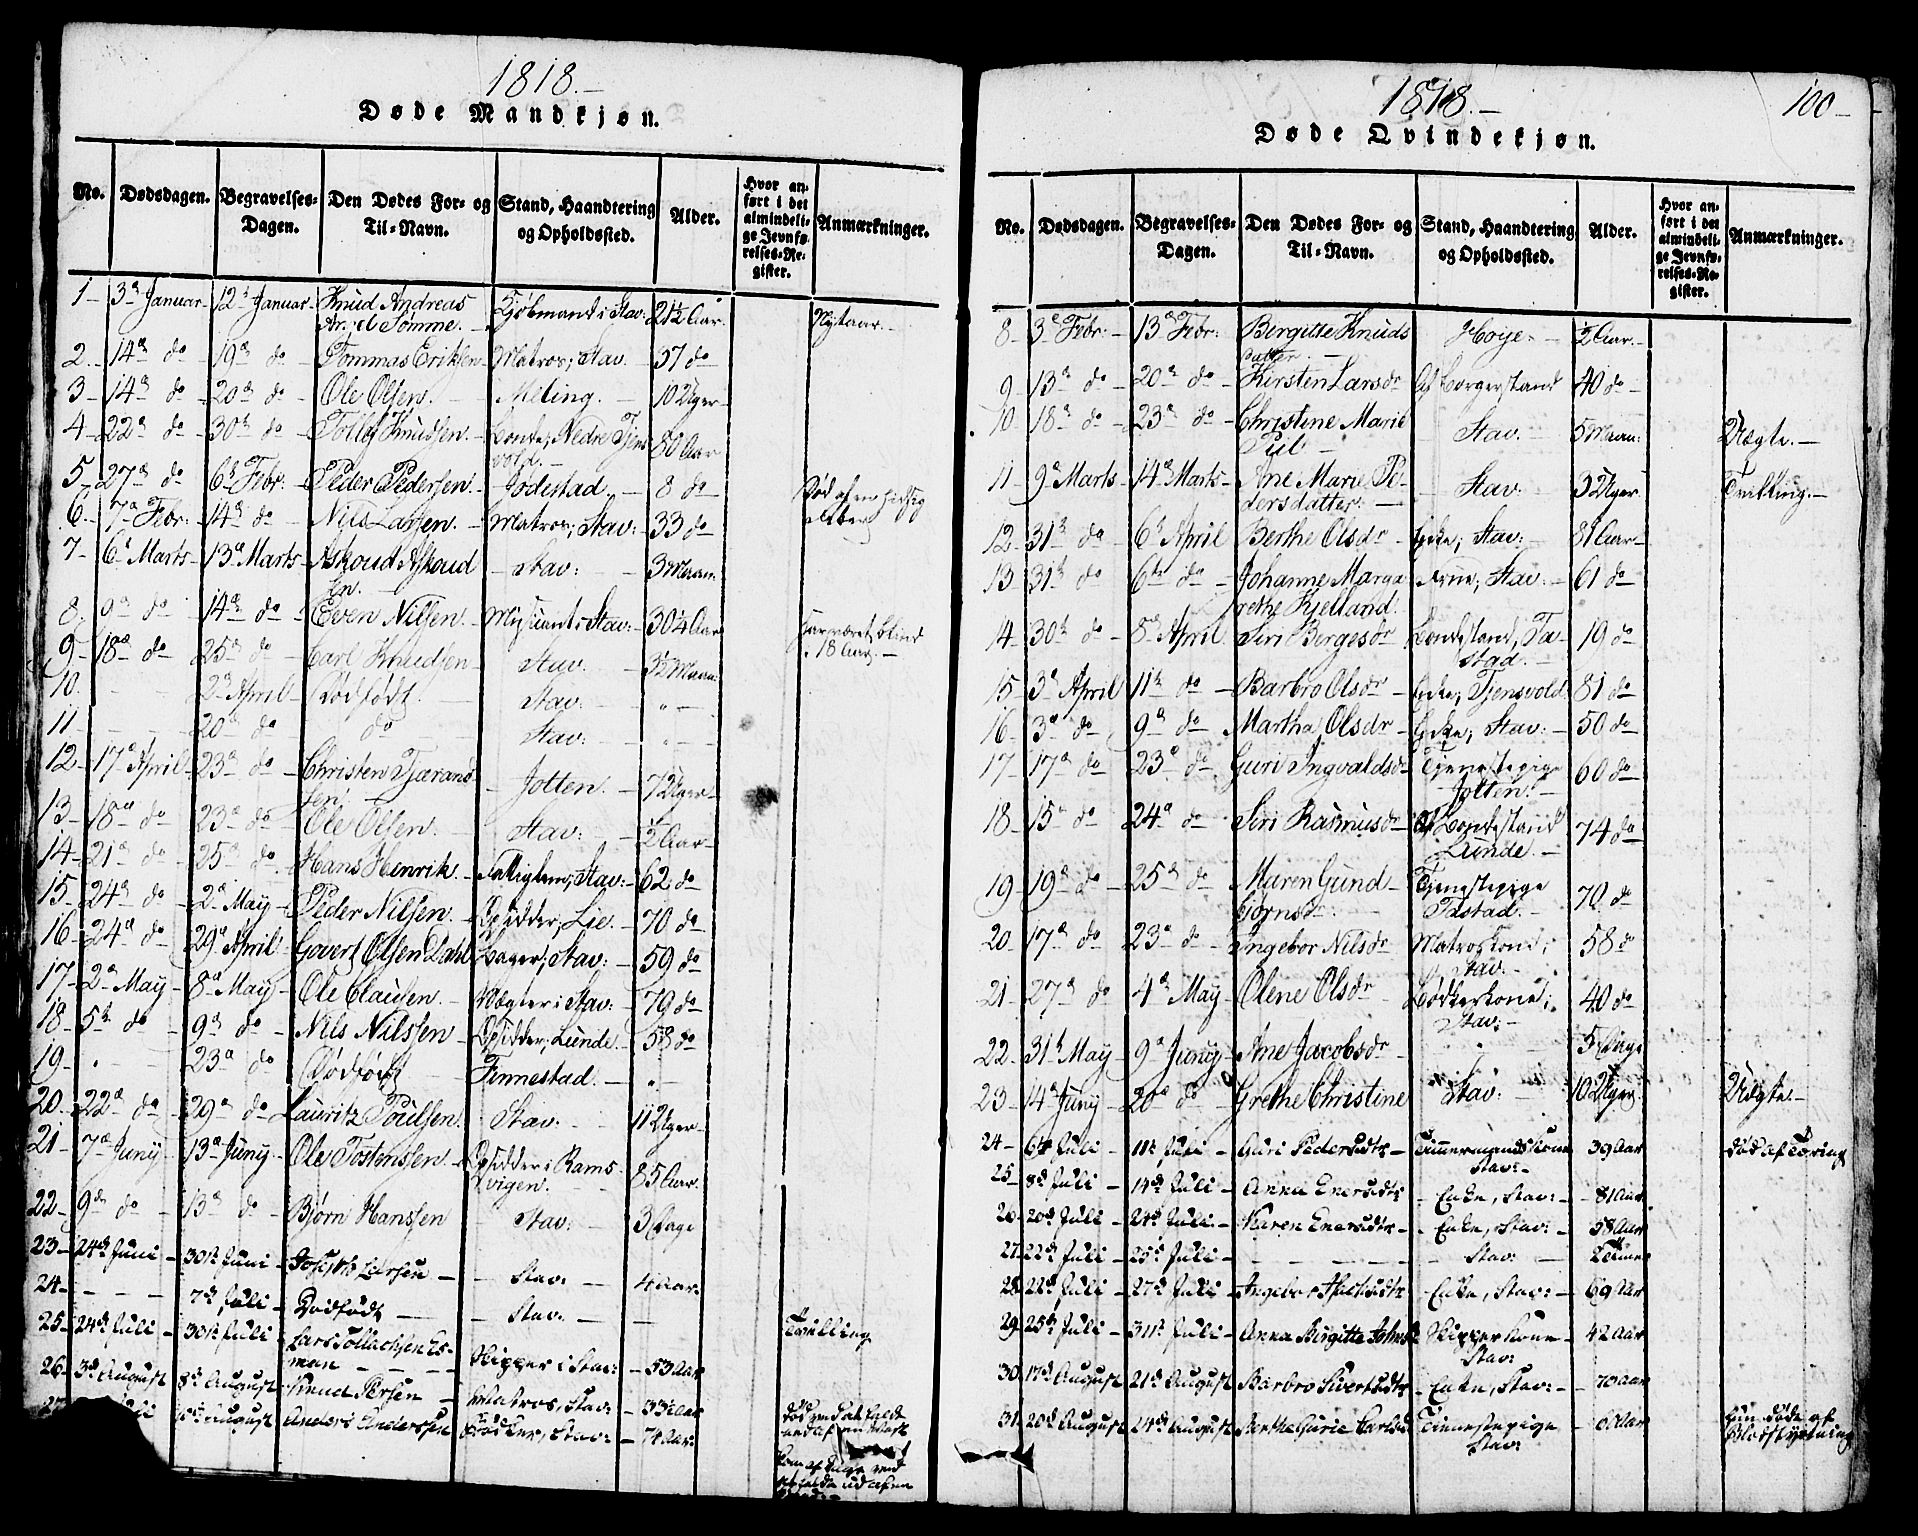 1818.-
Døde Mandkjøn.
No. Dødsdagen. Begravelses-Dagen. Den Dødes For- og Til-Navn. Stand, Haandtering og Opholdssted. Alder. Hvor anført i det almindelige Jevnførelses-Register. Anmærkninger.
1- 3de Januar- 12te Januar- Knud Andreas Sømme.- Kjøbmand i Stav: 21½ Aar. Nystaar.-
2.- 14de do 19de do Tommas Eriksen Matros, Stav. 37 do
3- 14de do 20de do Ole Olsen. Meling.- 10 Uger-
4- 22de do 30te do Tollef Knudsen. Bonde, Nedre Tjensvold.- 80 Aar
5- 27de do 6te Febr:- Peder Pedersen.- Jodestad, 8 do Død af en hidsig Feber
6.- 7de Febr: 14de do Nils Larsen.- Matros, Stav: 33 do
7- 6te Marts- 13de Marts- Askoud Askoudsen.- Stav: 3 Maan:
8. 9de do 14de do Even Nilsen. i Stav: 30¼ Aar har været blind i 18 Aar.-
9- 18de do 25de do Carl Knudsen Stav. 3½ Maan:
10. - - 2den April- Dødfødt. Stav: " -
11- - - 20de do do Stav: " -
12- 17de April- 23de do Christen Tjærandsen. Jotten.- 72 Uger-
13- 18de do 23de do Ole Olsen. Stav:- ½ Aar-
14- 21de do 25de do Hans Henrik.- Fattiglem, Stav:- 62 do
15- 24de do 2den May- Peder Nilsen.- Opsidder, Lie. 70 do
16- 24de do 29de April Govert Olsen Dahl Bager, Stav: 59 do
17- 2den May 8de May- Ole Clausen. Vægter i Stav: 79 do
18- 5te do 9de do Nils Nilssen Opsidder, Lunde. 58 do
19- " 23de do Dødfødt Finnestad.- " -
20. 22de do 29de do Lauritz Poulsen. Stav: 11 Uger-
21- 7de Juny 13de Juny.- Ole Tostenssen.- Opsidder i Ramsvigen. 85 Aar.
22- 9de do 13de do Bjørn Hanssen Stav: 3 Dage
23- 24de Juni- 30te Juni- Joseph Larsen- Stav:- 4 Aar:
24- - - - 7de Juli- Dødfødt- Stav:-
25- 24de Juli- 30te Juli- Lars Tollachsen Esman- Skipper i Stav:- 53 Aar Tvilling
26- 3de August 8de August- Knud Persen- Matros, Stav:- 33 Aar
27 Juli August Anders Anderssen Bødker, Stav:- 74 Aar:
1818.-
100-
Døde Qvindekjøn.
No. Dødsdagen. Begravelses-Dagen. Den Dødes For- og Til-Navn. Stand, Haandtering og Opholdssted. Alder. Hvor anført i det almindelige Jevnførelses-Register. Anmærkninger.
8- 3de Febr:- 13de Febr: Bergitte Knudsdatter.- Hoye.- ½ Aar.-
9- 13de do 20de do Kirsten Larsdr Af Borgerstand 40 do
10- 18de do 23de do Christine Marie Stav.- 5 Maan: Uægte.-
11- 9de Marts- 14de Marts- Ane Marie Pedersdatter.- Stav: 3 Uger Tvilling.-
12- 31te do 6te April Berthe Olsdr Enke, Stav:- 81 Aar-
13- 31te do 6te do Johanne Margarethe Kjelland. Frue, Stav:- 61 do
14- 30te do 8de April Siri Bergesdr Bondestand, Tastad.- 19 do
15- 3de April 11te do Barbro Olsdr Enke, Tjensvold. 81 do
16- 3de do 9de do Martha Olsdr Enke, Stav:- 50 do
17- 17de do 23de do Guri Ingvaldsdr Tjenestepige Jotten.- 60 do
18- 15de do 24de do Siri Rasmusdr Af Bondestand Lunde.- 74 do
19- 19de do 25de do Maren Gundbjørnsdr Tjenestepige Tastad.- 70 do
20- 17de do 23de do Ingebor Nilsdr Matroskone; Stav.- 58 do
21- 27de do 4de May- Olene Olsdr Bødkerkone; Stav:- 40 do
22- 31te May- 9de Juny- Ane Jacobsdr " 5 Dage
23- 14de Juny- 20de do Grethe Christine Stav: 10 Uger. Uægte.-
24- 6te Juli- 11te Juli- Guri Pedersdtr- Timmermands Kone Stav:- 39 Aar død af Tæring
25- 8de Juli- 14de Juli- Anna Enersdtr- Enke, Stav:- 81 Aar
26- 20de Juli- 24de Juli- Karen Enersdtr- Enke, Stav:- 58 Aar
27- 22de Juli- 25de Juli- - - - Stav:
28- 22de Juli- 27de Juli- Ingebor Enke, Stav:- 69 Aar
29- 25de Juli- 31te Juli- Anna Birgitte Johnsd Skipper Kone- Stav: 42 Aar
30- 17de August 21de August Barbro Sivertsdtr- Enke, Stav:- 70 Aar
31- 20de August 24de August Berthe Gurie Tjenestepige Stav: Aar Hun døde af Blodstyrtning